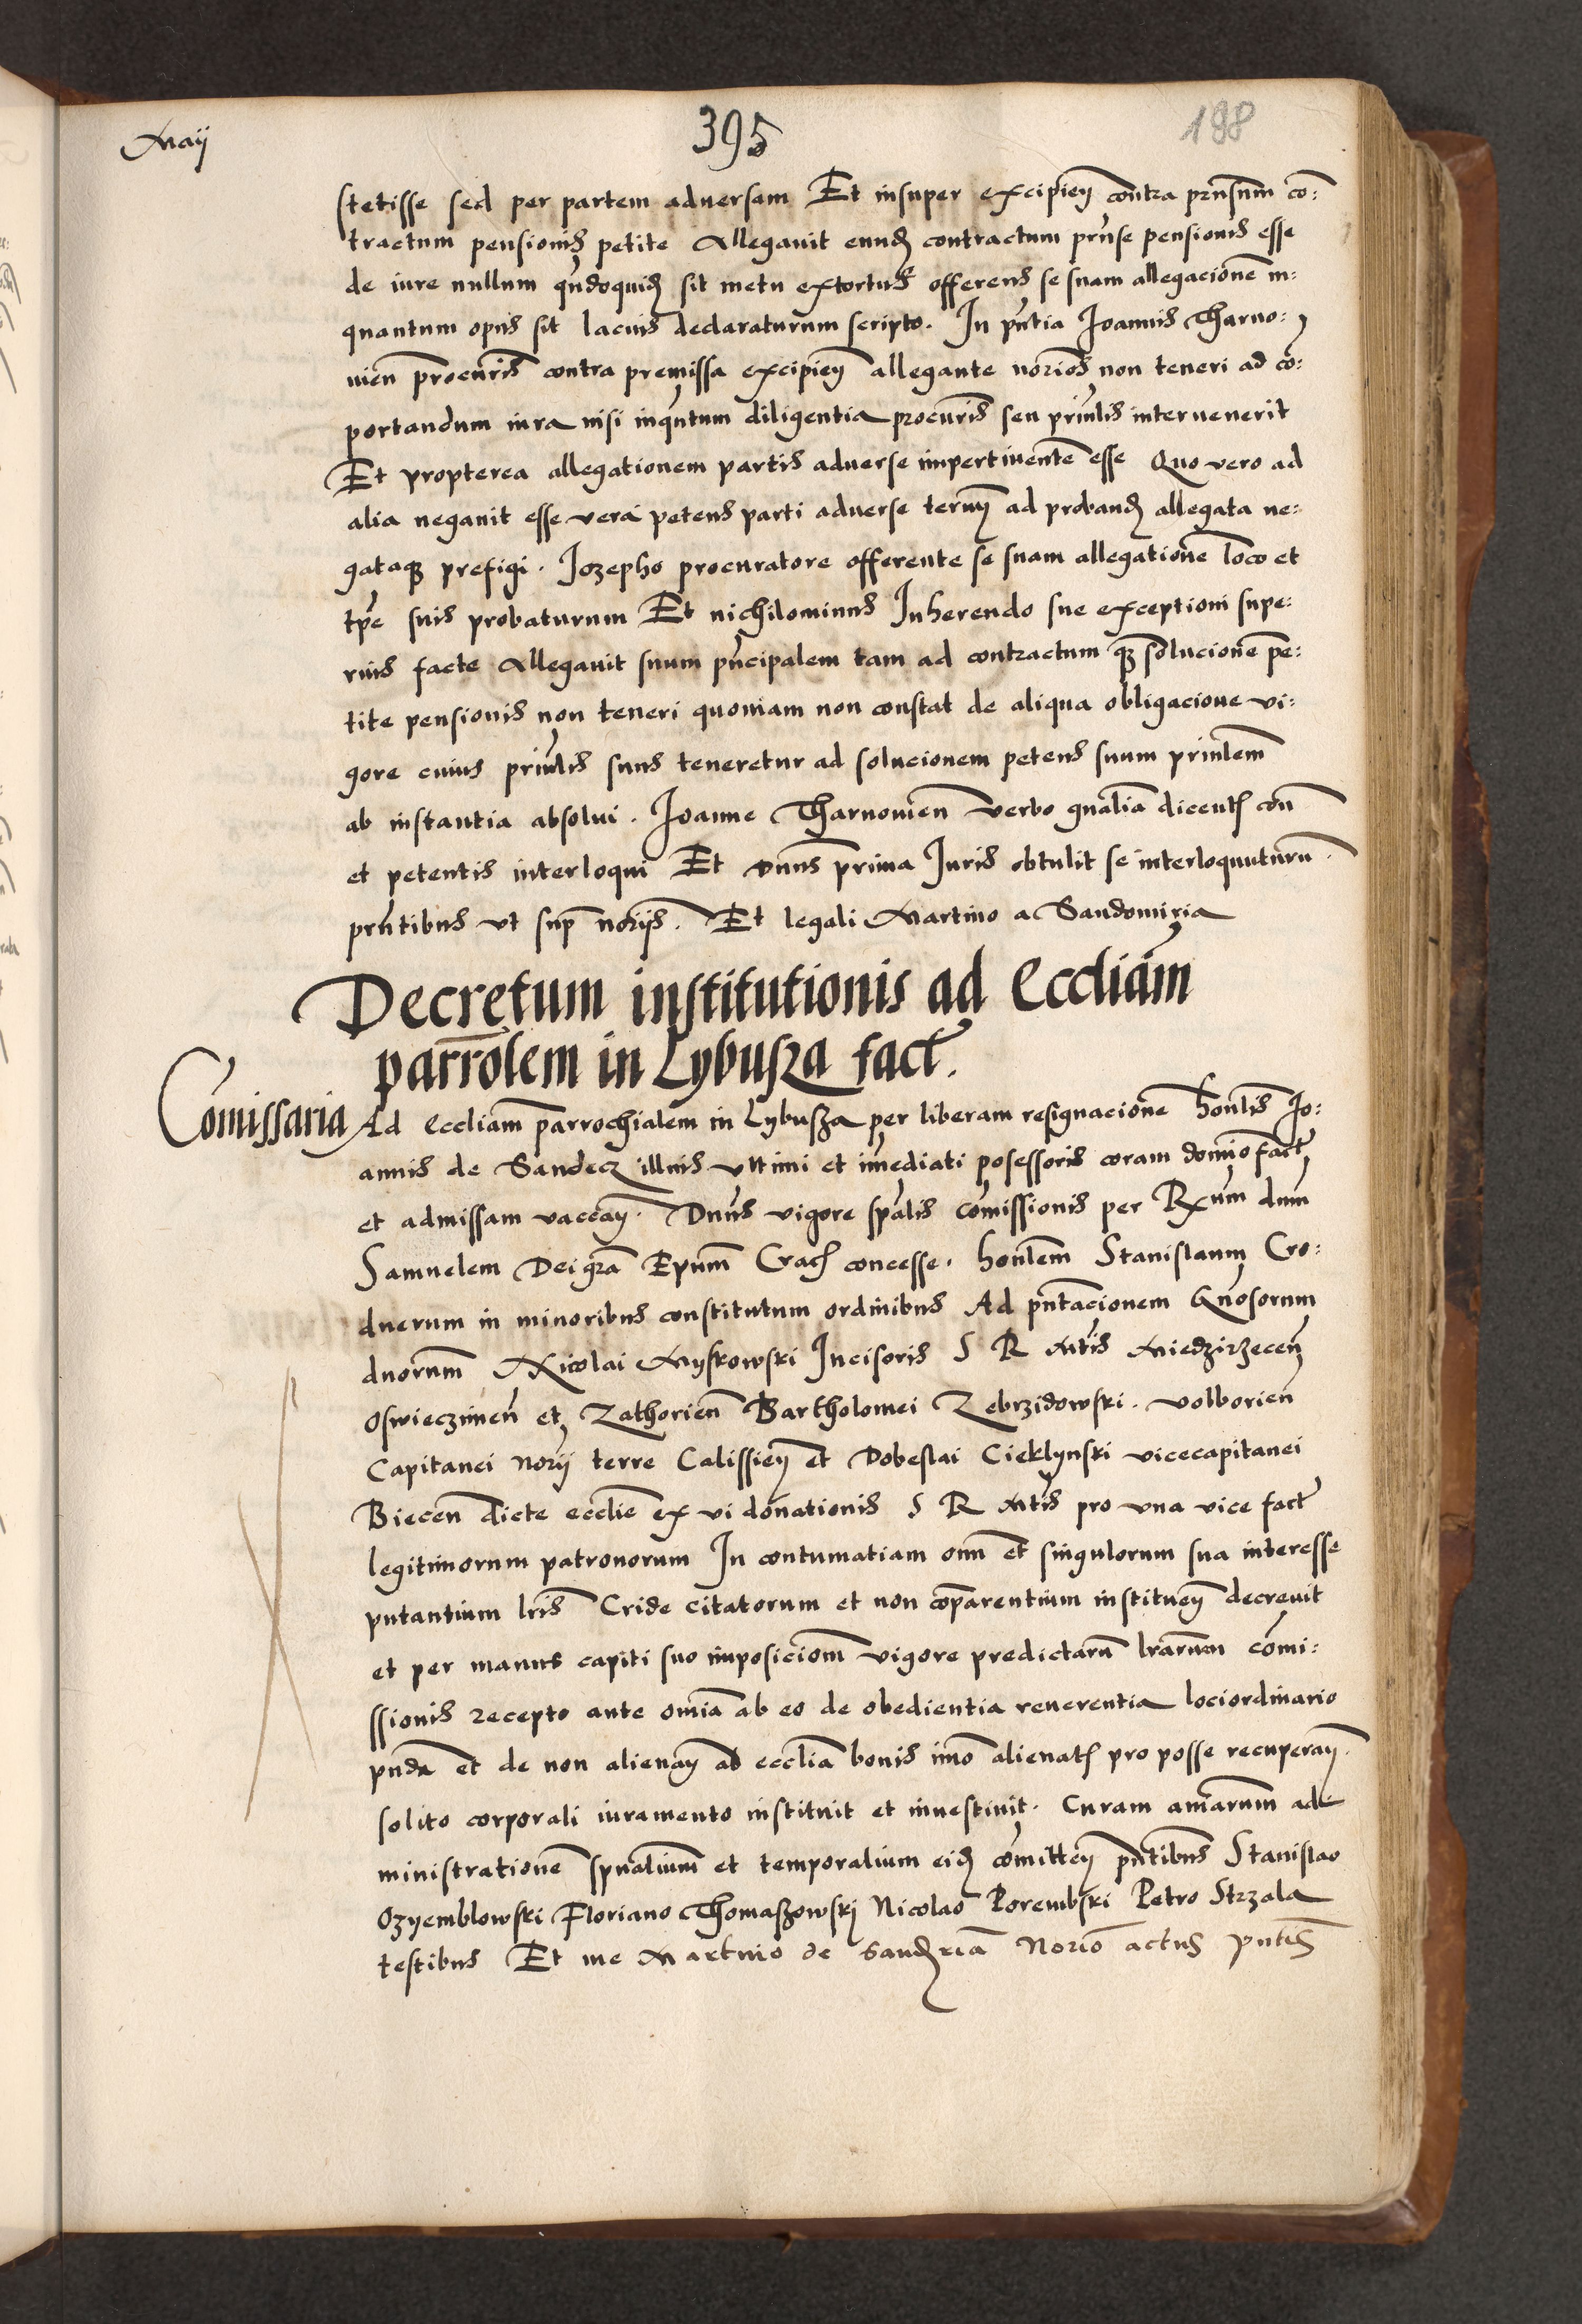 Maij
395
198
stetisse sed per partem aduersam Et insuper excipien̄ contra prn̄sum co:
tractum pensionis petite Allegauit eund̄ contractum prn̄se pensionis esse
de iure nullum qn̄doquid̄ sit metu extortus offerens se suam allegacionē in:
quantum opus sit lacius declaraturum scripto. In pn̄tia Joannis Tharno:
uien̄ procur̄is contra premissa excipien̄ allegante nor̄ios non teneri ad cō:
portandum iura nisi inqn̄tum diligentia procur̄is seu prin̄lis interuenerit
Et propterea allegationem partis aduerse impertinentē esse Quo vero ad
alia negauit esse vera petens parti aduerse termn̄ ad proband̄ allegata ne:
gataqȝ prefigi. Jozepho procuratore offerente se suam allegationē loco et
tpē suis probaturum Et nichilominus Inherendo sue exceptioni supe:
rius facte Allegauit suum pn̄cipalem tam ad contractum qȝ solucionē pe:
tite pensionis non teneri quoniam non constat de aliqua obligacione vi:
gore cuius prin̄lis suus teneretur ad solucionem petens suum prin̄lem
ab instantia absolui. Joanne Tharnouien̄ verbo gn̄alia dicent̄ con̄
et petentis interloqui Et Dn̄us prima Juris obtulit se interloquuturū.
prn̄tibus vt sup̄ nor̄ijs. Et legali Martino a Sandomiria
Decretum institutionis ad Eccliam̄
parrōlem in Lybusza fact̄.
Com̄issaria
Ad Eccliam̄ parrochialem in Lybusza per liberam resignacionē hon̄lis Jo:
annis de Sandecz illius vltimi et im̄ediati possessoris coram domīo fact̄
et admissam vacan̄. Dn̄us vigore spālis com̄issionis per Rxum dn̄m
Samuelem Dei grā Epūm Crac̄ concesse. hon̄lem Stanislaum Cro:
duerum in minoribus constitutum ordinibus Ad pn̄tacionem Gn̄osorum
dnorum̄ Nicolai Myskowski Incisoris S R Mt̄is Miedzirzecen̄
Oswieczimen̄ et Zathorien̄ Bartholomei Zebrzidowski. volborien̄
Capitanei nor̄ij terre Calissien̄ et Dobeslai Cieklynski vicecapitanei
Biecen̄ dicte ecclie ex vi donationis S R Mt̄is pro vna vice fact̄
legitimorum patronorum In contumatiam om̄n et singulorum sua interesse
putantium lrīs Cride citatorum et non cop̄arentium instituen̄ decreuit
et per manus capiti suo imposiciom̄ vigore predictarū lrarum comi:
ssionis recepto ante omīa ab eo de obedientia reuerentia lociordinario
pn̄da et de non alienan̄ ab ecclīa bonis imō alienat̄ pro posse recuperan̄.
solito corporali iuramento instituit et inuestiuit. Curam aīarum̄ ad
ministrationē spūalium̄ et temporalium eid̄ com̄itten̄ pn̄tibus Stanislao
Ozyemblowski Floriano Thomaszowskj Nicolao Porembski Petro Strzala
testibus Et me Martino de Sand̄ria Noriō actus pn̄tis